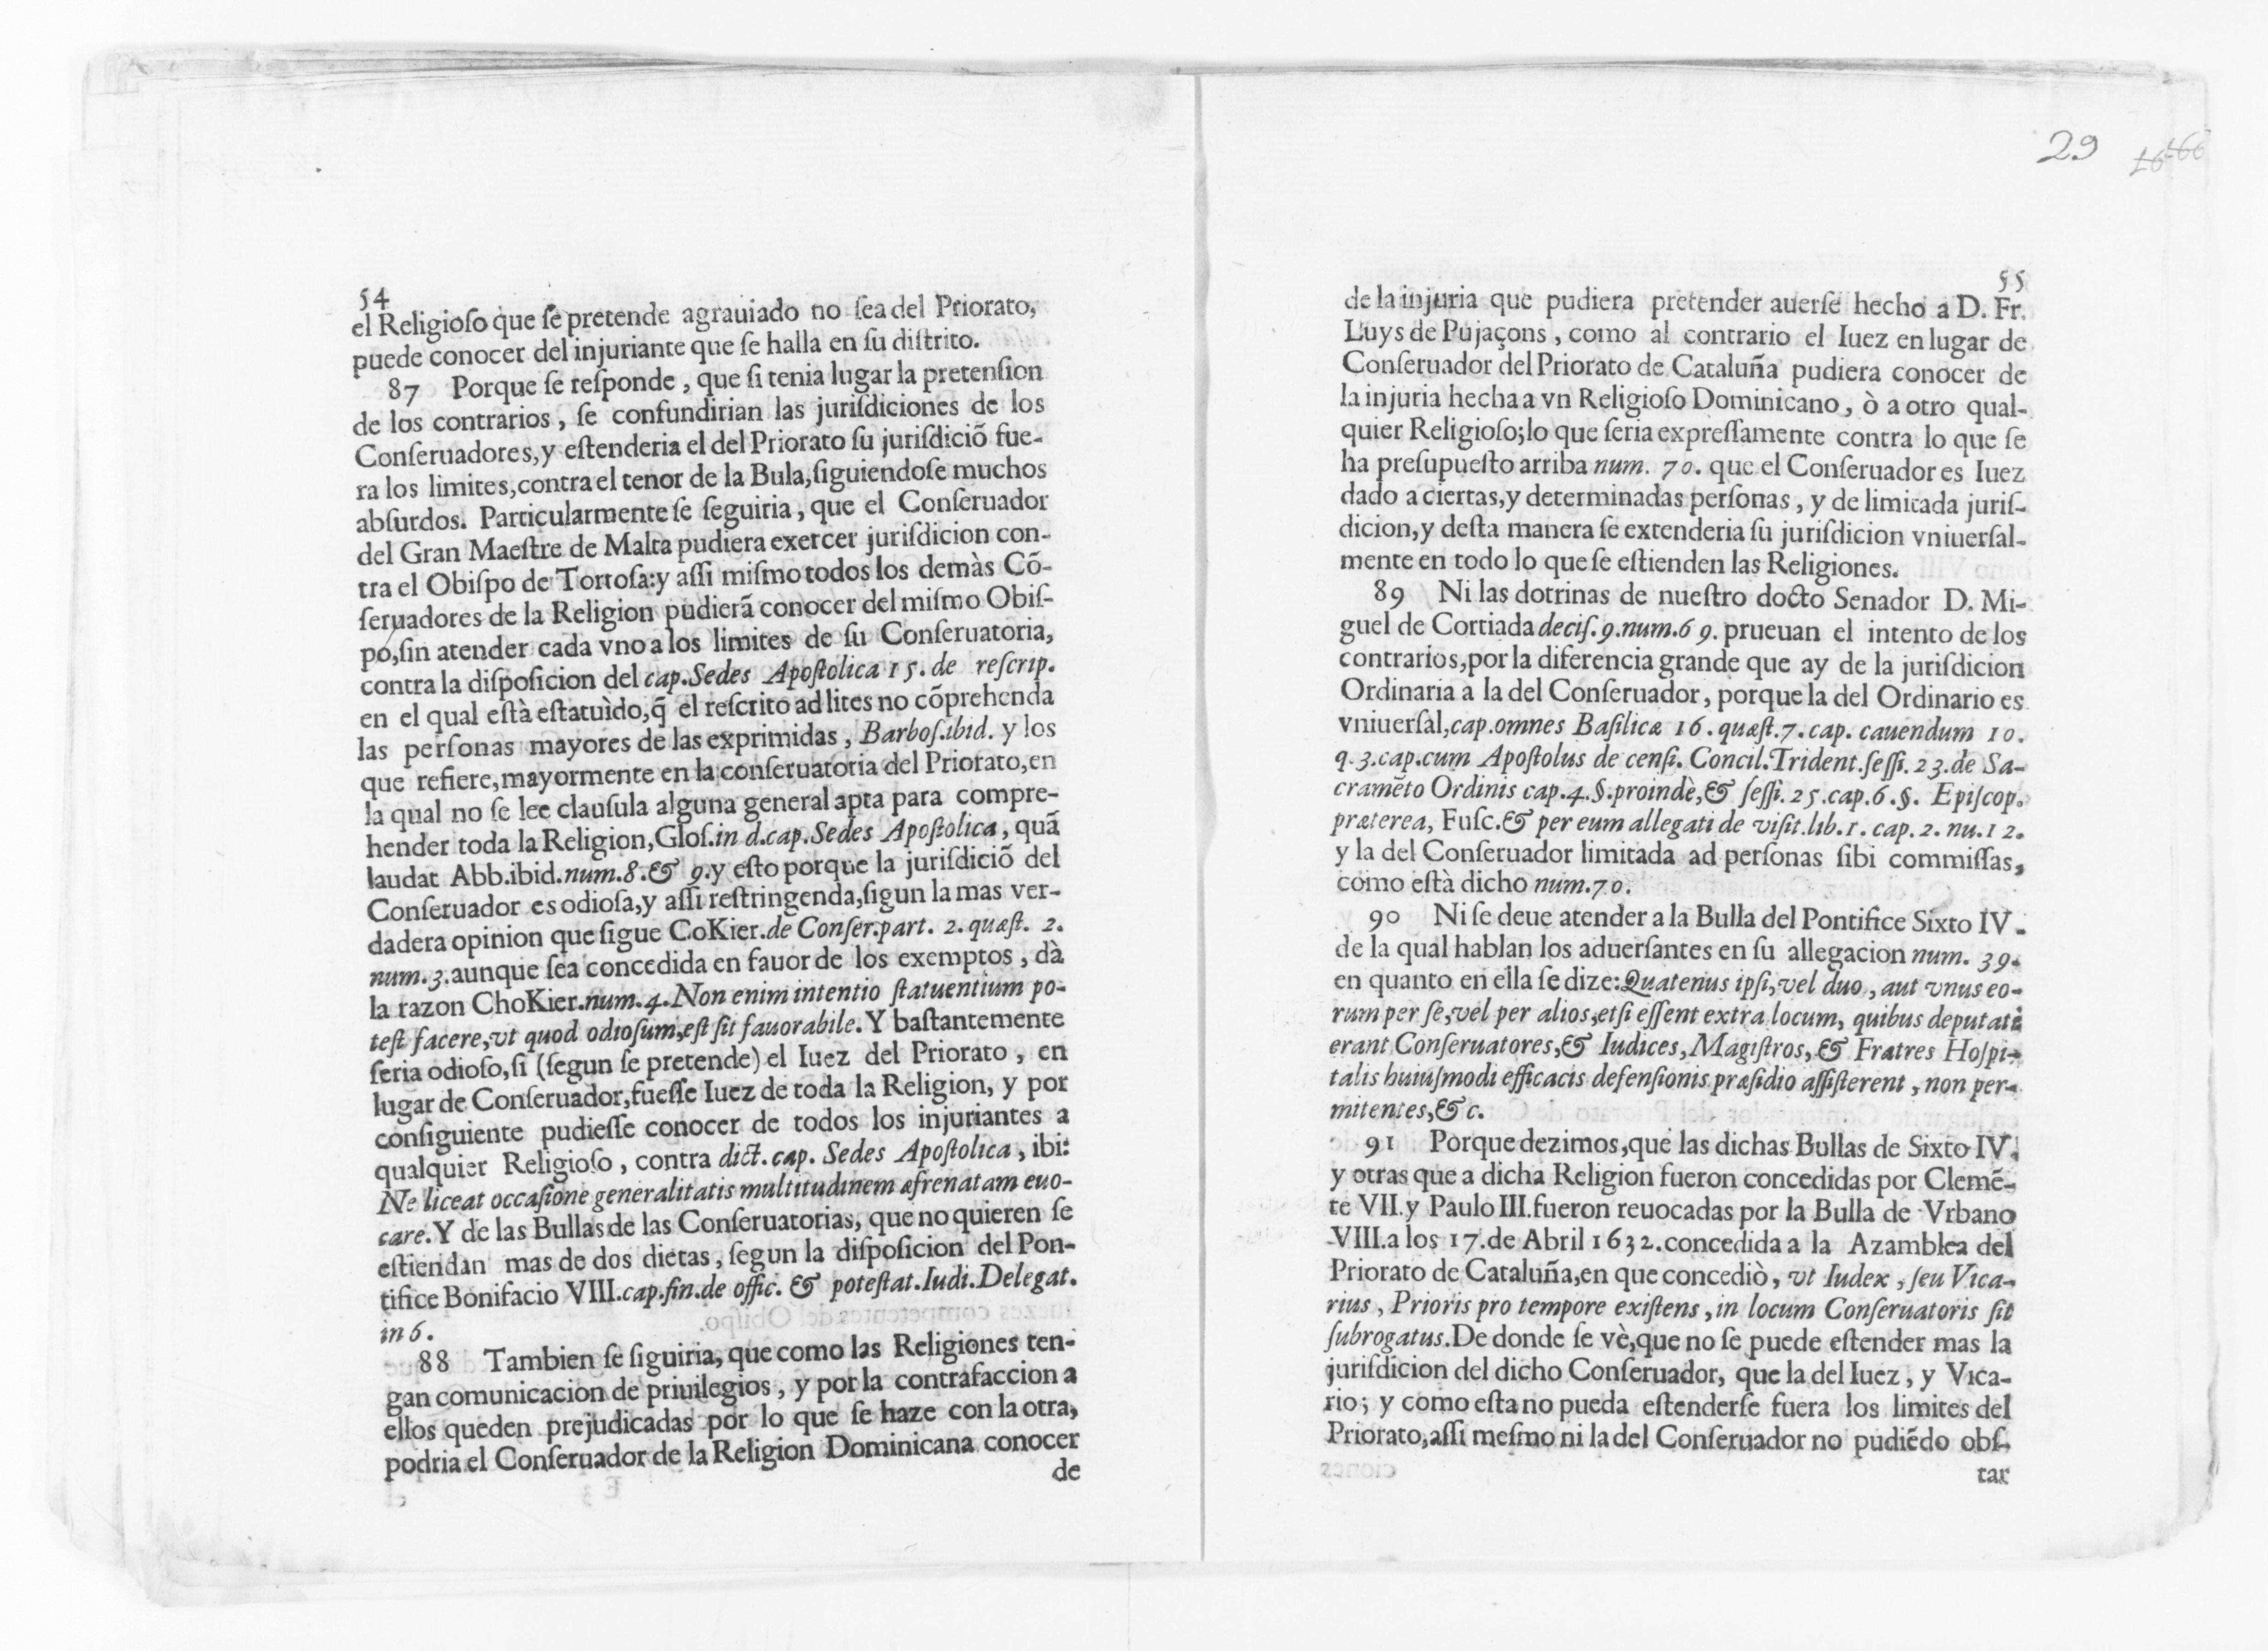 54
el Religioſo que ſe pretende agrauiado no ſea del Priorato,
puede conocer del injuriante que ſe halla en ſu diſtrito.
87 Porque ſe reſponde, que ſi tenia lugar la pretenſion
de los contrarios, ſe confundirian las juriſdiciones de los
Conſeruadores, y eſtenderia el del Priorato ſu juriſdiciõ fue-
ra los limites, contra el tenor de la Bula, ſiguiendoſe muchos
abſurdos. Particularmente ſe ſeguiria, que el Conſeruador
del Gran Maeſtre de Malta pudiera exercer juriſdicion con-
tra el Obiſpo de Tortoſa: y aſſi miſmo todos los demàs Cõ-
ſeruadores de la Religion pudierã conocer del miſmo Obiſ-
po, ſin atender cada vno a los limites de ſu Conſeruatoria,
contra la diſpoſicion del cap. Sedes Apoſtolica 15. de reſcrip.
en el qual eſtà eſtatuìdo, q̃ el reſcrito ad lites no cõprehenda
las perſonas mayores de las exprimidas, Barboſ. ibid. y los
que refiere, mayormente en la conſeruatoria del Priorato, en
la qual no ſe lee clauſula alguna general apta para compre-
hender toda la Religion, Gloſ. in d. cap. Sedes Apoſtolica, quã
laudat Abb. ibid. num. 8. & 9. y eſto porque la juriſdiciõ del
Conſeruador es odioſa, y aſſi reſtringenda, ſigun la mas ver-
dadera opinion que ſigue CoKier. de Conſer. part. 2. quæſt. 2.
num. 3. aunque ſea concedida en fauor de los exemptos, dà
la razon ChoKier. num. 4. Non enim intentio ſtatuentium po-
teſt facere, vt quod odioſum, eſt ſit fauorabile. Y baſtantemente
ſeria odioſo, ſi (ſegun ſe pretende) el Iuez del Priorato, en
lugar de Conſeruador, fueſſe Iuez de toda la Religion, y por
conſiguiente pudieſſe conocer de todos los injuriantes a
qualquier Religioſo, contra dict. cap. Sedes Apoſtolica, ibi:
Ne liceat occaſione generalitatis multitudinem æfrenatam euo-
care. Y de las Bullas de las Conſeruatorias, que no quieren ſe
eſtiendan mas de dos dietas, ſegun la diſpoſicion del Pon-
tifice Bonifacio VIII. cap. fin. de offic. & poteſtat. Iudi. Delegat.
in 6.
88 Tambien ſe ſiguiria, que como las Religiones ten-
gan comunicacion de priuilegios, y por la contrafaccion a
ellos queden prejudicadas por lo que ſe haze con la otra,
podria el Conſeruador de la Religion Dominicana conocer
de
29
55
de la injuria que pudiera pretender auerſe hecho a D. Fr.
Luys de Pujaçons, como al contrario el Iuez en lugar de
Conſeruador del Priorato de Cataluña pudiera conocer de
la injuria hecha a vn Religioſo Dominicano, ò a otro qual-
quier Religioſo; lo que ſeria expreſſamente contra lo que ſe
ha preſupueſto arriba num. 70. que el Conſeruador es Iuez
dado a ciertas, y determinadas perſonas, y de limitada juriſ-
dicion, y deſta manera ſe extenderia ſu juriſdicion vniuerſal-
mente en todo lo que ſe eſtienden las Religiones.
89 Ni las dotrinas de nueſtro docto Senador D. Mi-
guel de Cortiada deciſ. 9. num. 69. prueuan el intento de los
contrarios, por la diferencia grande que ay de la juriſdicion
Ordinaria a la del Conſeruador, porque la del Ordinario es
vniuerſal, cap. omnes Baſilicæ 16. quæſt. 7. cap. cauendum 10.
q. 3. cap. cum Apoſtolus de cenſi. Concil. Trident. ſeſſi. 23. de Sa-
cramẽto Ordinis cap. 4. §. proindè, & ſeſſi. 25. cap. 6. §. Epiſcop.
præterea, Fuſc. & per eum allegati de viſit. lib. 1. cap. 2. nu. 12.
y la del Conſeruador limitada ad perſonas ſibi commiſſas,
como eſtà dicho num. 70.
90 Ni ſe deue atender a la Bulla del Pontifice Sixto IV.
de la qual hablan los aduerſantes en ſu allegacion num. 39.
en quanto en ella ſe dize: Quatenus ipſi, vel duo, aut vnus eo-
rum per ſe, vel per alios, etſi eſſent extra locum, quibus deputati
erant Conſeruatores, & Iudices, Magiſtros, & Fratres Hoſpi-
talis huiuſmodi efficacis defenſionis præſidio aſſiſterent, non per-
mitentes, &c.
91 Porque dezimos, que las dichas Bullas de Sixto IV.
y otras que a dicha Religion fueron concedidas por Clemẽ-
te VII. y Paulo III. fueron reuocadas por la Bulla de Vrbano
VIII. a los 17. de Abril 1632. concedida a la Azamblea del
Priorato de Cataluña, en que concediò, vt Iudex, ſeu Vica-
rius, Prioris pro tempore exiſtens, in locum Conſeruatoris ſit
ſubrogatus. De donde ſe vè, que no ſe puede eſtender mas la
juriſdicion del dicho Conſeruador, que la del Iuez, y Vica-
rio; y como eſta no pueda eſtenderſe fuera los limites del
Priorato, aſſi meſmo ni la del Conſeruador no pudiẽdo obſ-
tar